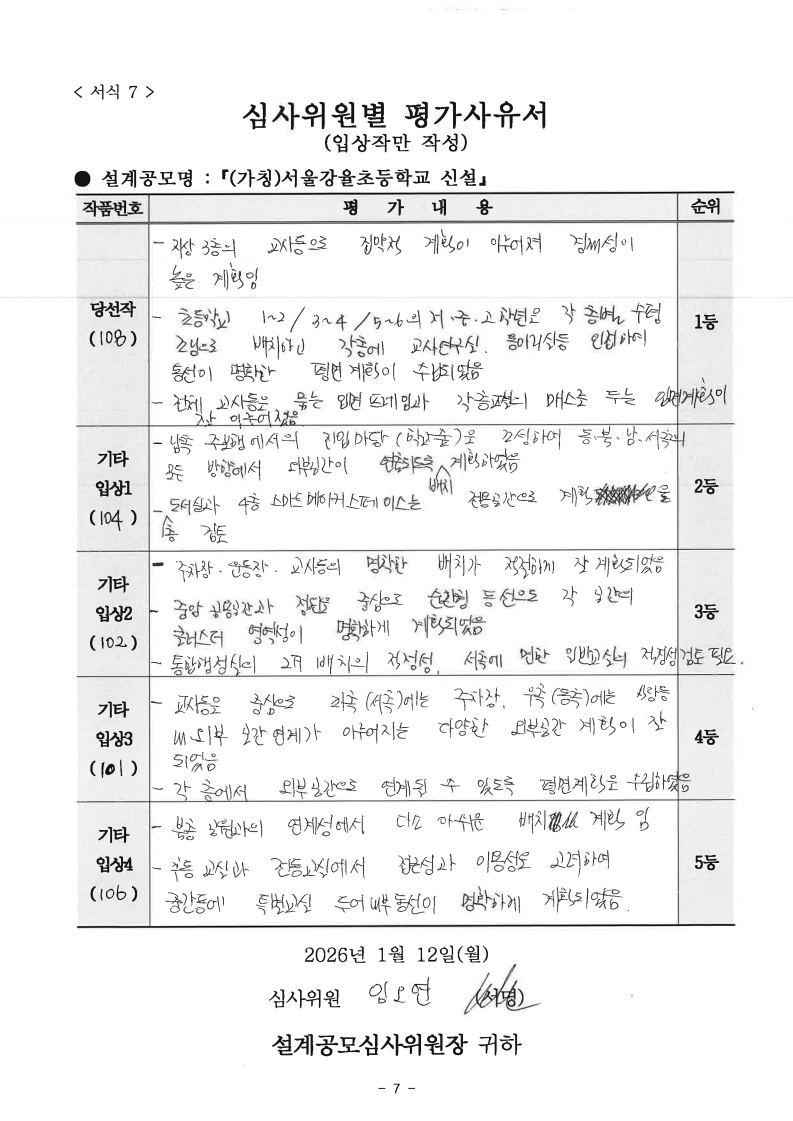 < 서식 7 >
심사위원별 평가사유서
(입상작만 작성)
● 설계공모명 : 『(가칭)서울강율초등학교 신설』
작품번호 평 가 내 용 순위
당선작
(108)
- 지상 3층의 교사동으로 집약적 계획이 이루어져 경제성이
높은 계획임
- 초등학교 1~2 / 3~4 / 5~6의 저·중·고학년은 각 층별 수평
조닝으로 배치하고 각층에 교사연구실, 동아리실등 인접하여
동선이 명확한 평면계획이 수립되었음
- 전체 교사동을 묶는 입면 프레임과 각층 의 매스로 두는 입면계획이
잘 이루어졌음
1등
기타
입상1
(104)
- 남측 주보행에서의 진입마당(학과숲)을 조성하여 동·북·남·서측의
모든 방향에서 외부공간이 연출되도록 계획하였음
- 도서실과 4층 스마트메이커스페이스는 배치 전용공간으로 계획
층 검토
2등
기타
입상2
(102)
- 주차장·운동장·교사동의 명확한 배치가 적절하게 잘 계획되었음
- 중앙 공용공간과 중심으로 순환형 동선으로 각 공간의
클러스터 영역성이 명확하게 계획되었음
- 통합행정실의 2개 배치의 적정성, 서측에 면한 일반교실의 적정성 검토 필요.
3등
기타
입상3
(101)
- 교사동을 중심으로 좌측(서측)에는 주차장, 우측(동측)에는
내외부 공간 연계가 이루어지는 다양한 외부공간 계획이 잘
되었음
- 각 층에서 외부공간으로 연계될 수 있도록 평면계획을 수립하였음
4등
기타
입상4
(106)
- 북측 공원과의 연계성에서 다소 아쉬운 배치 계획임
- 후동 교실과 전동교실에서 접근성과 이용성을 고려하여
중간동에 특별교실 두어 내부동선이 명확하게 계획되었음.
5등
2026년 1월 12일(월)
심사위원 임오연 (서명)
설계공모심사위원장 귀하
- 7 -